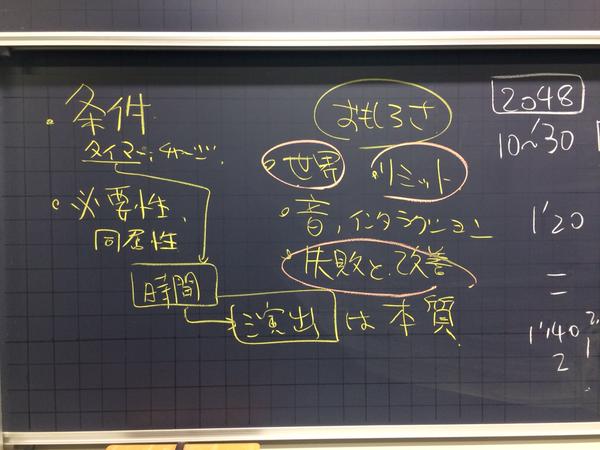 ・条件
タイマー、チャージ
・必要性、
同居性
時間
演出 は 本質
おもしろさ
・世界
・リミット
・音、インタラクション
・失敗と改善
2048
10〜'30
1'20
=
1'40
2